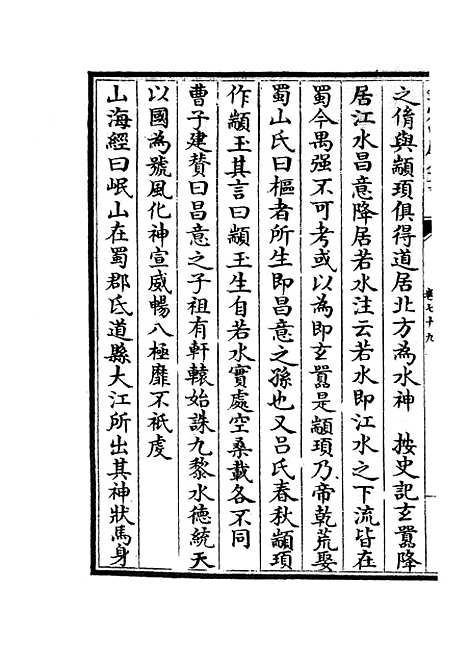 卷七十九
之脩與顓頊俱得道居北方為水神　按史記玄囂降
居江水昌意降居若水注云若水即江水之下流皆在
蜀今禺强不可考或以為即玄囂是顓頊乃帝乾荒娶
蜀山氏曰樞者所生即昌意之孫也又吕氏春秋顓頊
作顓玉其言曰顓玉生自若水實處空桑載各不同
曹子建賛曰昌意之子祖有軒轅始誅九黎水德統天
以國為號風化神宣威暢八極靡不祇虔
山海經曰岷山在蜀郡氐道縣大江所出其神狀馬身